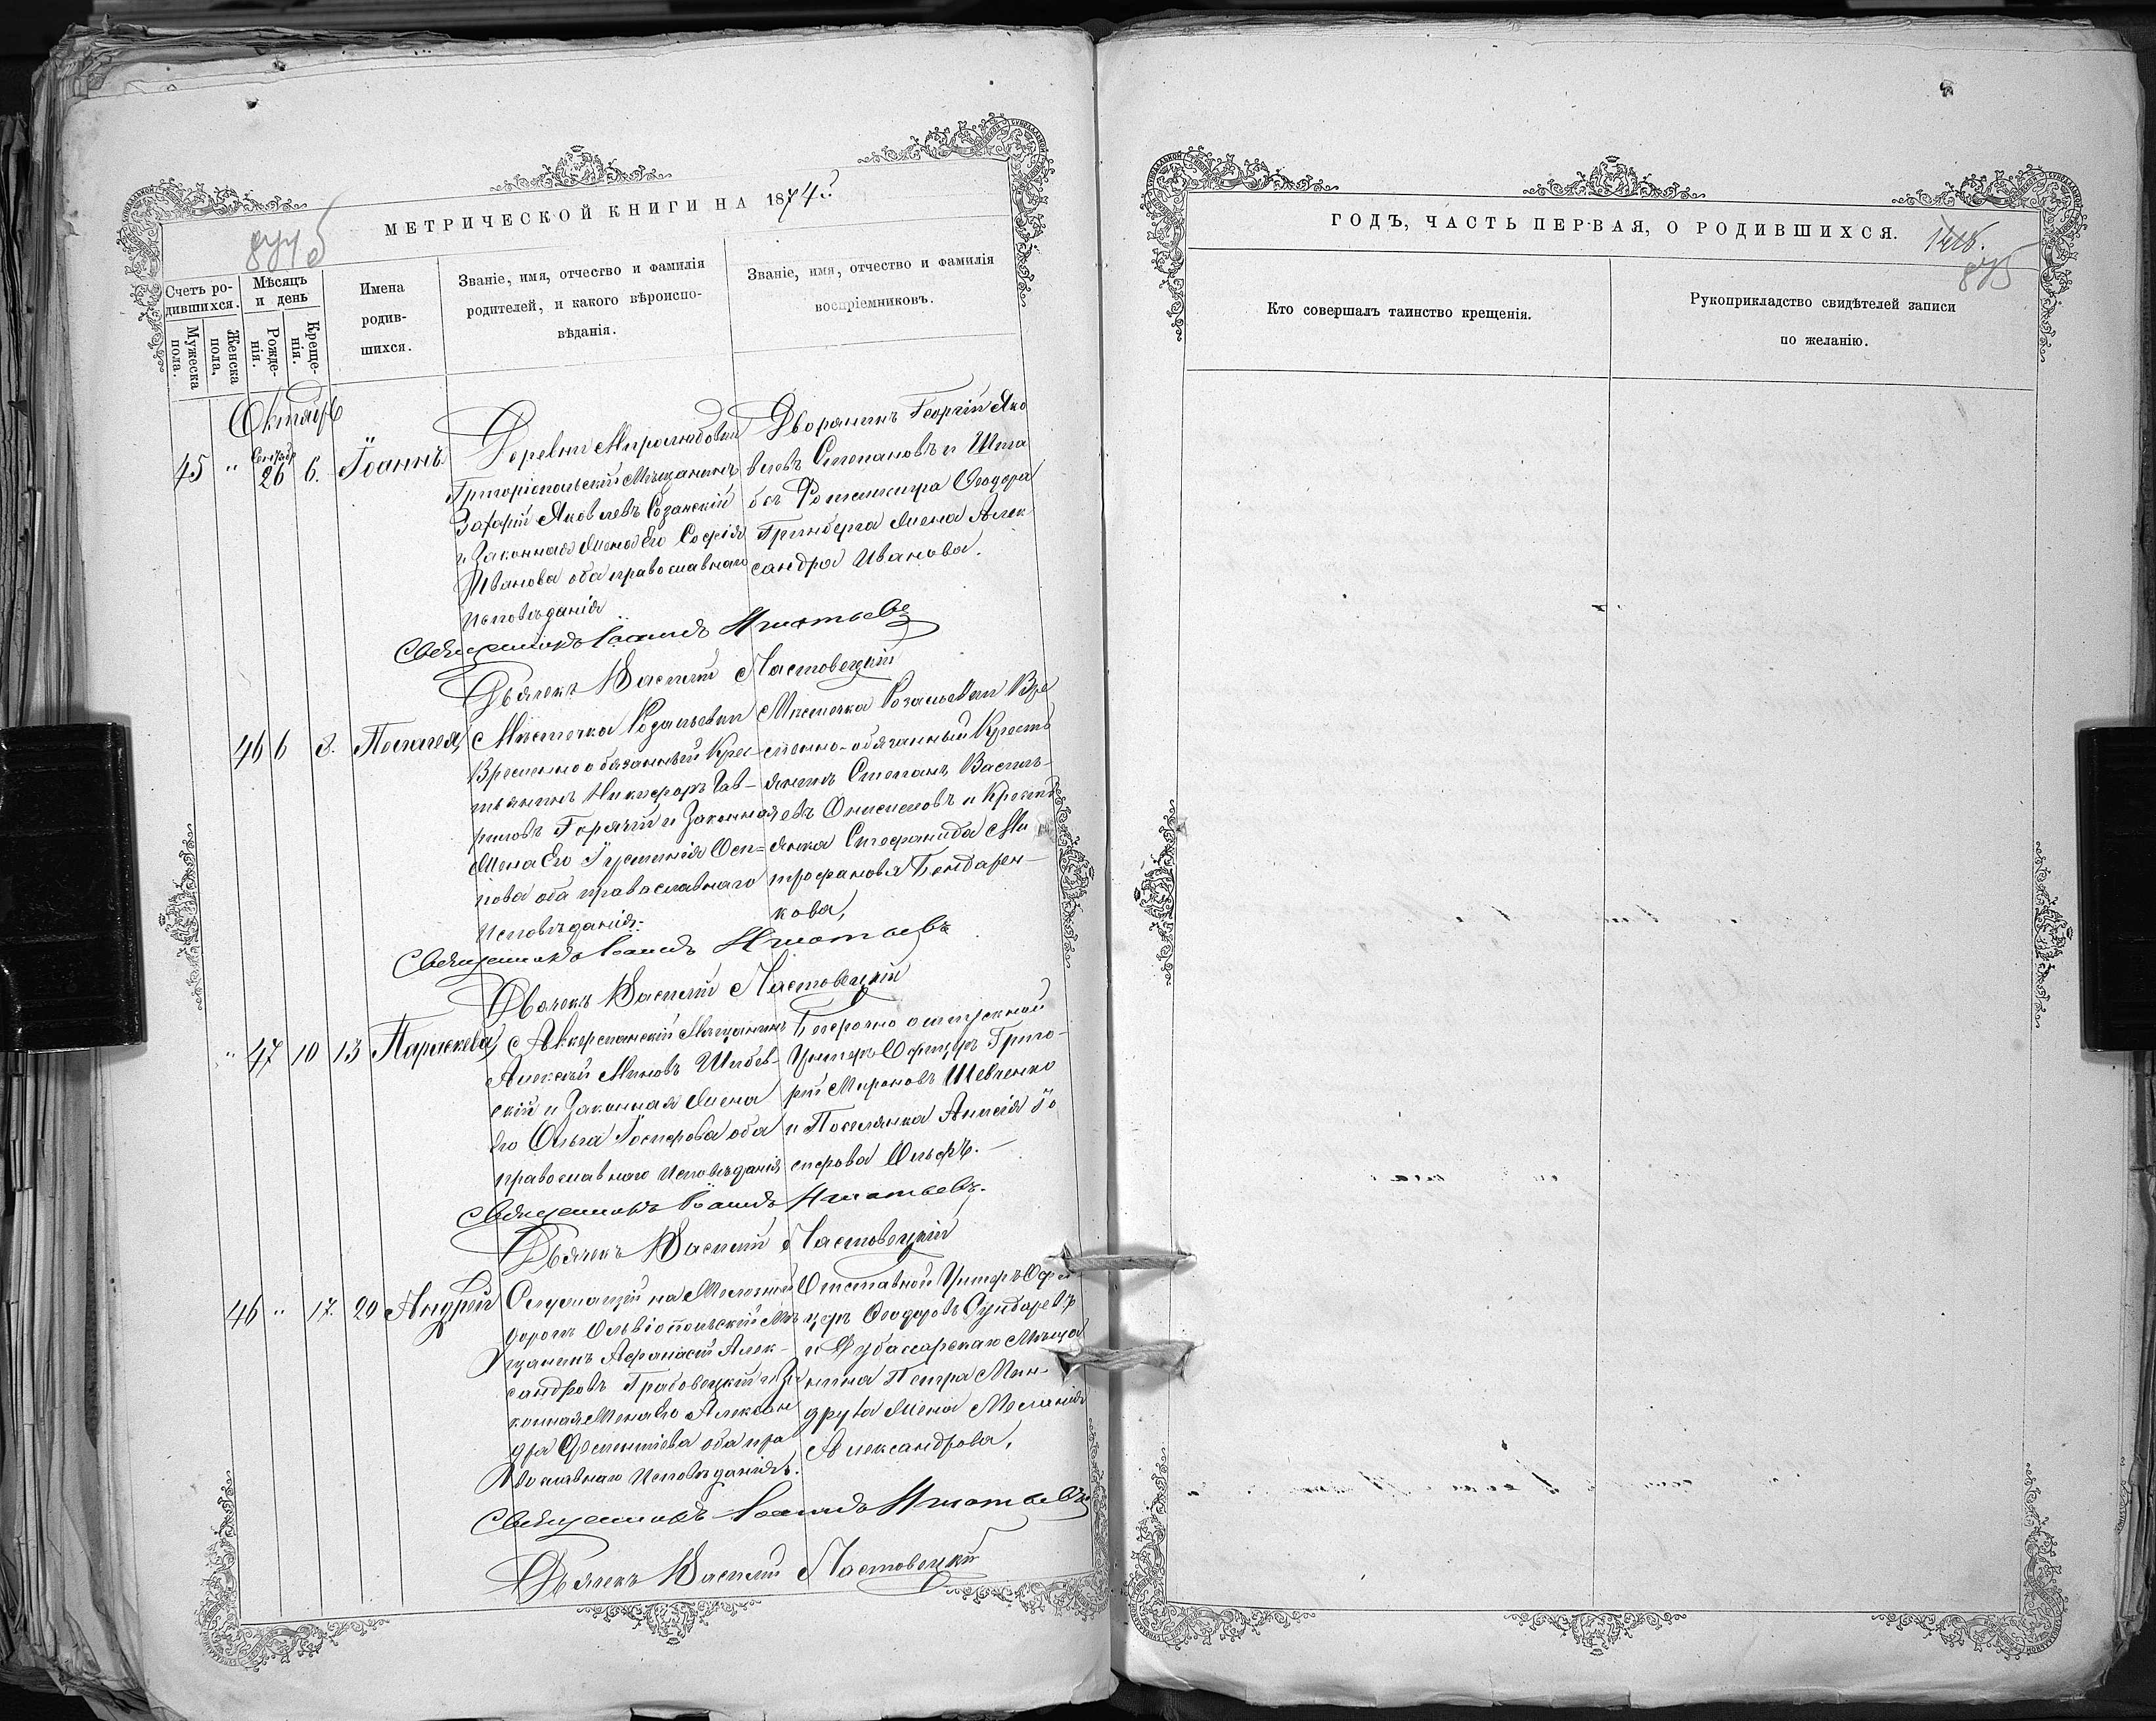 МЕТРИЧЕСКОЙ КНИГИ НА 1874й
Счетъ ро-
дившихся.
Мужеска
пола.
Женска
пола.
Мѣсяцъ
и день
Рожде-
нія.
Креще-
нія.
Имена
родив-
шихся.
Званіе, имя, отчество и фамилія
родителей, и какого вѣроиспо-
вѣданія.
Званіе, имя, отчество и фамилія
воспріемниковъ.
Октябрь
45 " Сентябр 26 6. Іоаннъ.
Деревни Миролюбовки
Григоріопольскій Мѣщанинъ
Захарій Яковлевъ Созанскій
и Законная Жена Его Софія
Иванова оба православнаго
исповѣданія
Дворянинъ Георгій Яко
влевъ Степановъ и Шта
бсъ Ротмистра Ѳеодора
Гринберга Жена Алек
сандра Иванова.
Священникъ Іоаннъ Игнатьевъ
Дьячекъ Василій Ластовецкій
46 6 8. Пелагея,
Мѣстечка Розальевки
Временно обязанный Крес-
тьянинъ Никифоръ Гав-
риловъ Горячій и Законная
Жена Его Іустинія Оси=
пова оба православнаго
исповѣданія.
Мѣстечка Розальевки Вре
менно-обязанный Кресть
янинъ Степанъ Василь-
евъ Онисимовъ и Кресть
янка Стефанида Ми
трофанова Бондарен-
кова,
Священникъ Іоаннъ Игнатьевъ
Дьячекъ Василій Ластовецкій
" 47 10 13 Параскева,
Аккерманскій Мѣщанинъ
Алексѣй Миновъ
скій и Законная Жена
Его Ольга Іосифова оба
православнаго исповѣданія
Безсрочно отпускной
Унтеръ Офицеръ Григо-
рій Мироновъ Шевченко
и Поселянка Анисія Іо
сифова
Священникъ Іоаннъ Игнатьевъ.
Дьячекъ Василій Ластовецкій
46 " 17. 20 Андрей
Служащій на Желѣзной
дорогѣ Ольвіопольскій Мѣ
щанинъ Афанасій Алек-
сандровъ Грабовецкій и За
конная Жена Его Алексан
дра Дементіева оба пра
вославнаго исповѣданія.
Отставной Унтеръ Офи
церъ Ѳеодоръ
и Дубассарскаго Мѣща
нина Петра Ман-
друта Жена Меланія
Александрова,
Священникъ Іоаннъ Игнатьевъ
Дьячекъ Василій Ластовецкій
ГОДЪ, ЧАСТЬ ПЕРВАЯ, О РОДИВШИХСЯ.
875
Кто совершалъ таинство крещенія.
Рукоприкладство свидѣтелей записи
по желанію.